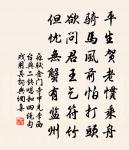 平生賀老慣乘舟
騎馬風前怕打頭
欲問君王乞符竹
但無蟹有監州
蘇軾金門寺中見李西
台與二錢唱和四絕句
戲用其韻跋之